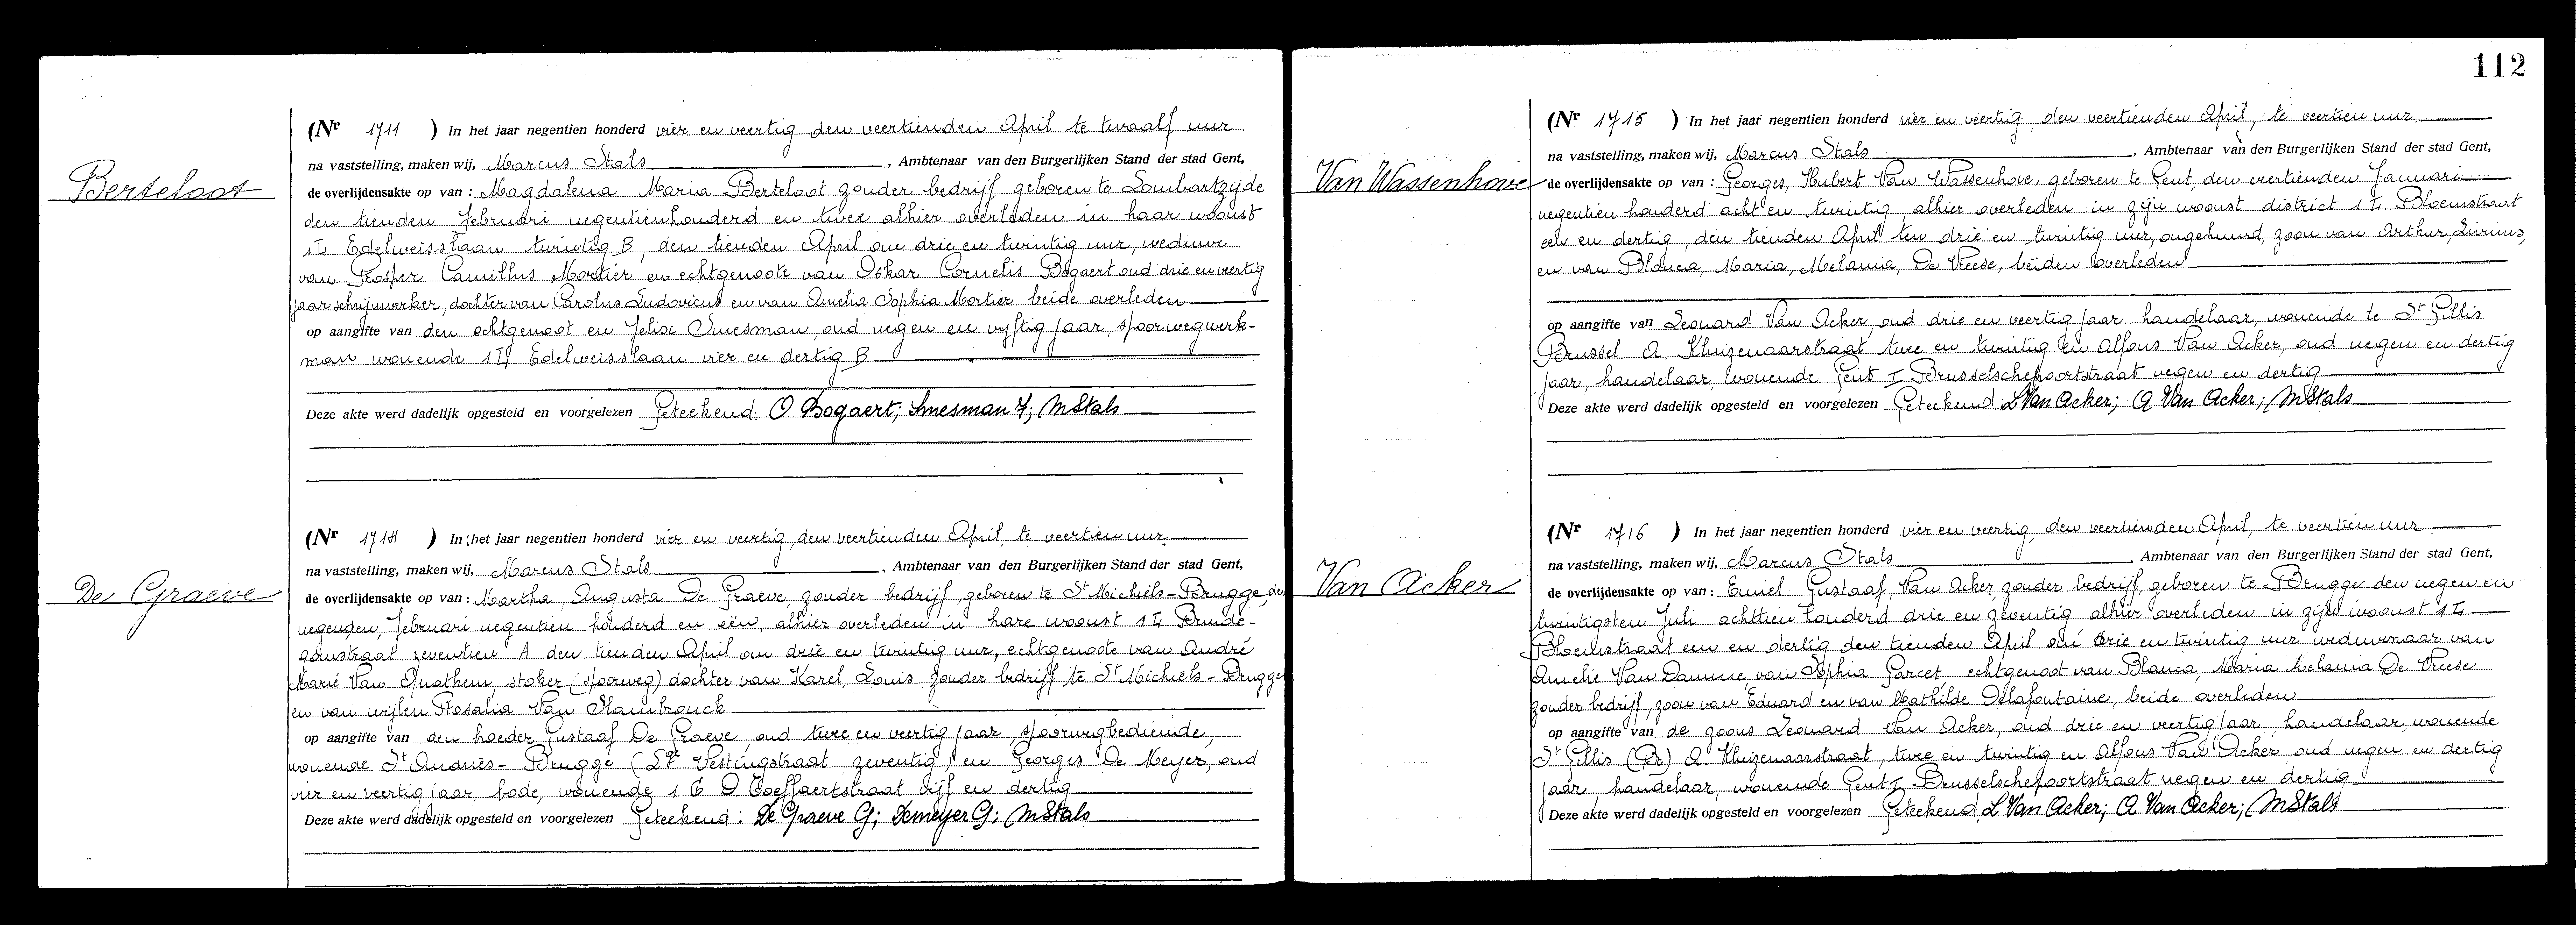 Berteloot
(Nr 1711 ) In het jaar negentien honderd vier en veertig den veertienden April te twaalf uur
na vaststelling, maken wij, Marcus Stals , Ambtenaar van den Burgerlijken Stand der stad Gent,
de overlijdensakte op van : Magdalena Maria Berteloot zonder bedrijf geboren te Lombartzijde
den tienden Februari negentienhonderd en twee alhier overleden in haar woonst
1 I Edelweisslaan twintig B, den tienden April om drie en twintig uur, weduwe
van Prosper Camillus Mortier en echtgenoote van Oskar Cornelis Bogaert oud drie en veertig
jaar schrijnwerker, dochter van Carolus Ludovicus en van Amelia Sophia Mortier beide overleden
op aangifte van den echtgenoot en Felix Smesman, oud negen en vyftig jaar, spoorwegwerk-
man wonende 1 I Edelweisslaan vier en dertig B
Deze akte werd dadelijk opgesteld en voorgelezen Geteekend: O Bogaert; Smesman F; MStals
De Graeve
(Nr 1714 ) In het jaar negentien honderd vier en veertig, den veertienden April, te veertien uur
na vaststelling, maken wij, Marcus Stals , Ambtenaar van den Burgerlijken Stand der stad Gent,
de overlijdensakte op van : Martha, Augusta De Graeve, zonder bedrijf, geboren te St Michiels-Brugge, den
negenden, Februari negentien honderd en eën, alhier overleden in hare woonst 1 I Brunde-
gonstraat zeventien A den tienden April om drie en twintig uur, echtgenoote van André
Marië Van Quathem, stoker (spoorweg) dochter van Karel, Louis, zonder bedrijf te St Michiels-Brugge
en van wijlen Rosalia Van Slambrouck
op aangifte van den broeder Gustaaf De Graeve, oud twee en veertig jaar, spoorwegbediende,
wonende St Andriès-Brugge (Lge Vestingstraat, zeventig) en Georges De Meyer, oud
vier en veertig jaar, bode, wonende 1 C O Coeffaertstraat vijf en dertig
Deze akte werd dadelijk opgesteld en voorgelezen Geteekend: De Graeve G; Demeyer G; MStals
112
Van Wassenhove
(Nr 1715 ) In het jaar negentien honderd vier en veertig, den veertienden April, te veertien uur
na vaststelling, maken wij, Marcus Stals , Ambtenaar van den Burgerlijken Stand der stad Gent,
de overlijdensakte op van : Georges, Hubert Van Wassenhove, geboren te Gent, den veertienden Januari
negentien honderd acht en twintig, alhier overleden in zijn woonst district 1 I Bloemstraat
een en dertig, den tienden April ten drie en twintig uur, ongehuwd, zoon van Arthur, Livinus,
en van Blanca, Maria, Melania, De Vreese, beiden overleden
op aangifte van Leonard Van Acker, oud drie en veertig jaar handelaar, wonende te St Gillis
Brussel A Kluizenaarstraat twee en twintig en Alfons Van Acker, oud negen en dertig
jaar, handelaar, wonende Gent I Brusselschepoortstraat negen en dertig
Deze akte werd dadelijk opgesteld en voorgelezen Geteekend: L Van Acker; A Van Acker; MStals
Van Acker
(Nr 1716 ) In het jaar negentien honderd vier en veertig, den veertienden April, te veertien uur
na vaststelling, maken wij, Marcus Stals Ambtenaar van den Burgerlijken Stand der stad Gent,
de overlijdensakte op van : Emiel Gustaaf, Van Acker, zonder bedrijf, geboren te Brugge den negen en
twintigsten Juli achttien honderd drie en zeventig alhier overleden in zijn woonst 1 I
Bloemstraat een en dertig den tienden April om drie en twintig uur weduwnaar van
Amelie Van Damme, van Sophia Garcet echtgenoot van Blanca, Maria Melania De Vreese
zonder bedrijf, zoon van Eduard en van Mathilde Delafontaine, beide overleden
op aangifte van de zoons Leonard Van Acker, oud drie en veertig jaar, handelaar, wonende
St Gillis (Br) A. Kluizenaarstraat, twee en twintig en Alfons Van Acker oud negen en dertig
jaar, handelaar, wonende Gent I Brusselschepoortstraat negen en dertig
Deze akte werd dadelijk opgesteld en voorgelezen Geteekend, L Van Acker; A. Van Acker; MStals